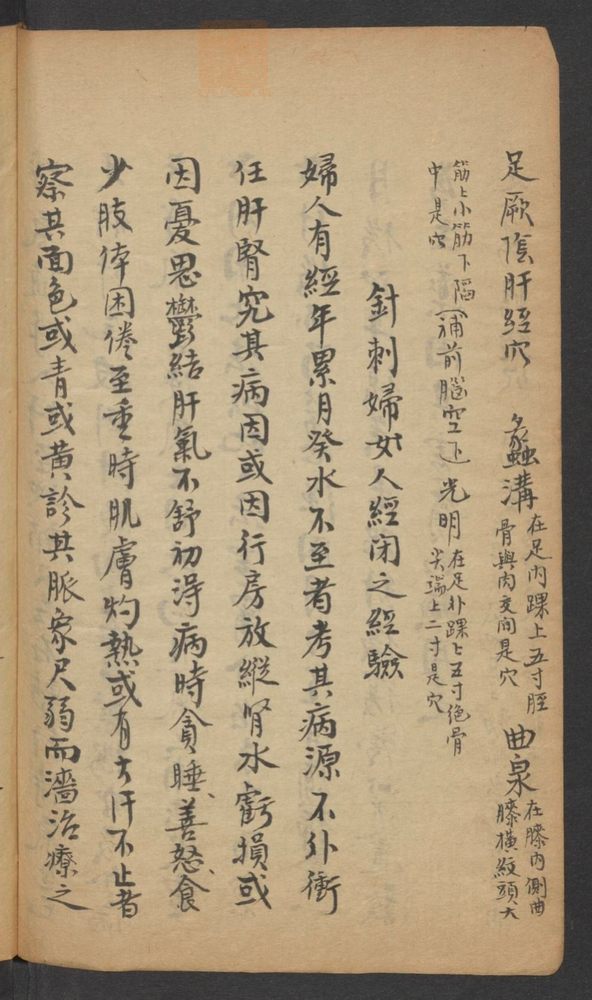 足厥陰肝經穴 蠡溝 在足內踝上五寸脛骨與肉交间是穴 曲泉 在膝內側曲膝橫紋頭大
筋上小筋下陷中是穴 (補前腦空下) 光明 在足外踝上五寸絕骨尖端上二寸是穴
針刺婦女人經闭之經驗
婦人有經年累月癸水不至者考其病源不外衝
任肝腎究其病因或因行房放縱腎水虧損或
因憂思鬱結肝氣不舒初淂病時貪睡、善怒、食
少肢体困倦至重時肌膚灼熱或有大汗不止者
察其面色或青或黃診其脈象尺弱而濇治療之